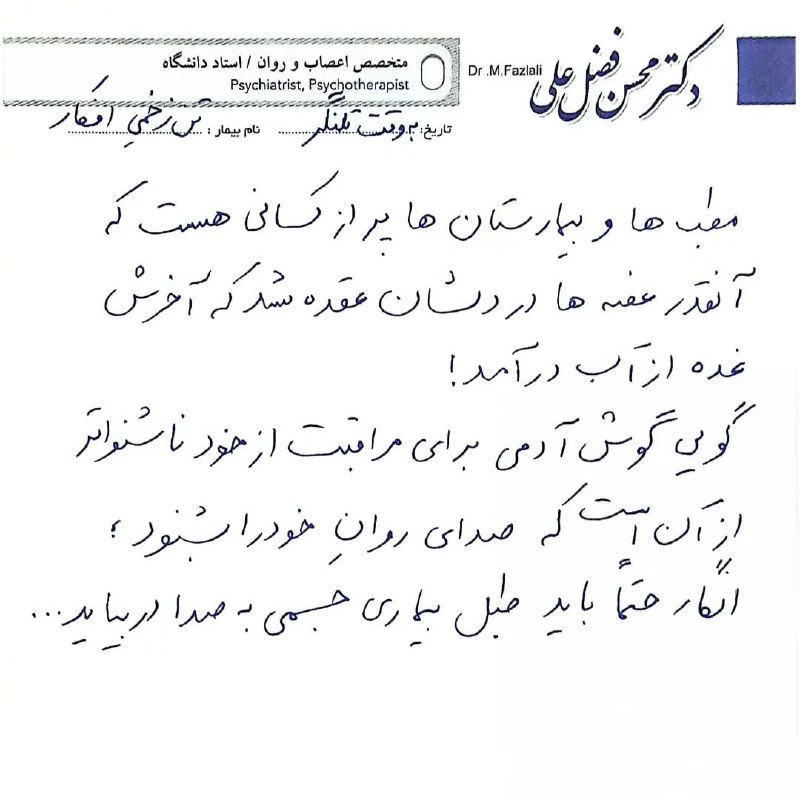 دکتر محسن فضل علی
Dr .M.Fazlali
متخصص اعصاب و روان / استاد دانشگاه
Psychiatrist, Psychotherapist
تاریخ: به وقت تلنگر نام بیمار: تن زخمیِ افکار
مطب ها و بیمارستان ها پر از کسانی هست که
آنقدر غصه ها در دلشان عقده شد که آخرش
غده از آب درآمد!
گویی گوش آدمی برای مراقبت از خود ناشنواتر
از آن است که صدای روانِ خود را بشنود؛
انگار حتماً باید طبل بیماری جسمی به صدا در بیاید...